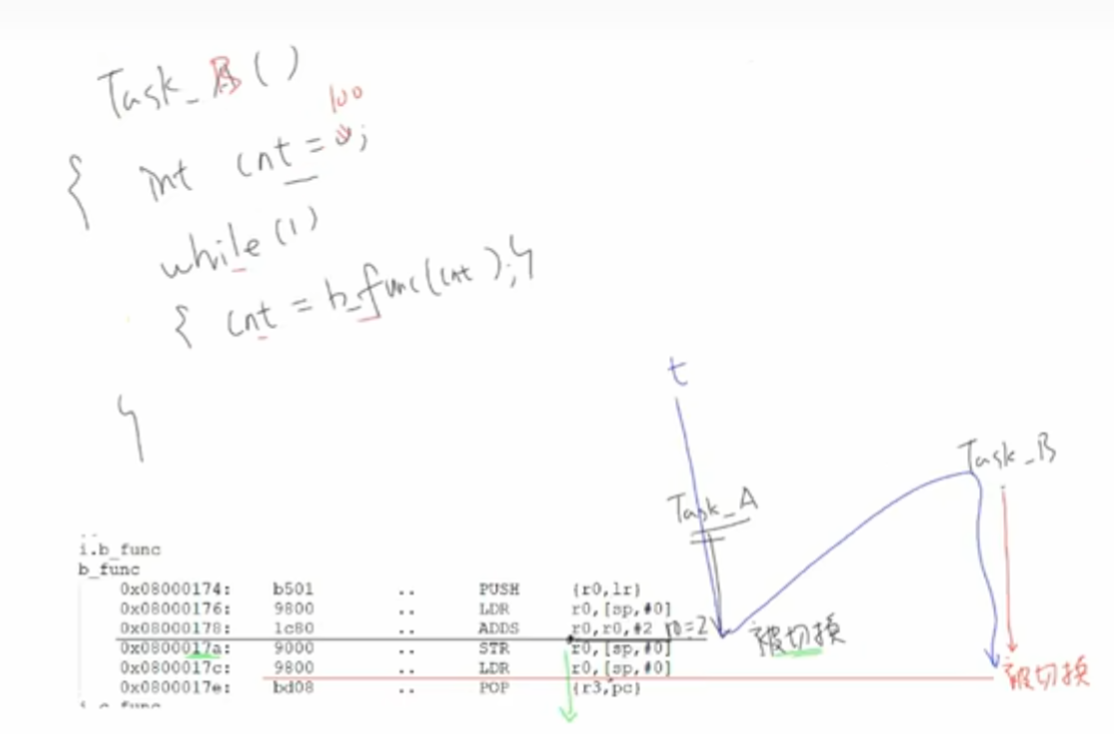 Task_B()
100
{ int cnt = 0;
while(1)
{ cnt = b_func(cnt);}
}
t
Task_B
Task_A
i.b_func
b_func
0x08000174: b501 .. PUSH {r0,lr}
0x08000176: 9800 .. LDR r0,[sp,#0]
0x08000178: 1c80 .. ADDS r0,r0,#2 r0=2 被切换
0x0800017a: 9000 .. STR r0,[sp,#0]
0x0800017c: 9800 .. LDR r0,[sp,#0] 被切换
0x0800017e: bd08 .. POP {r3,pc}